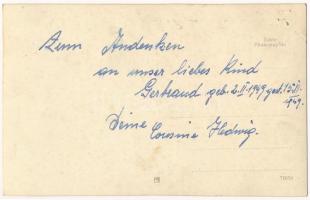 Zum Andenken
an unser liebes Kind
Gertraud geb. 2.II.1949 gest. 15.II.
1949.
Deine
Cousine Hedwig.
Echte
Photographie